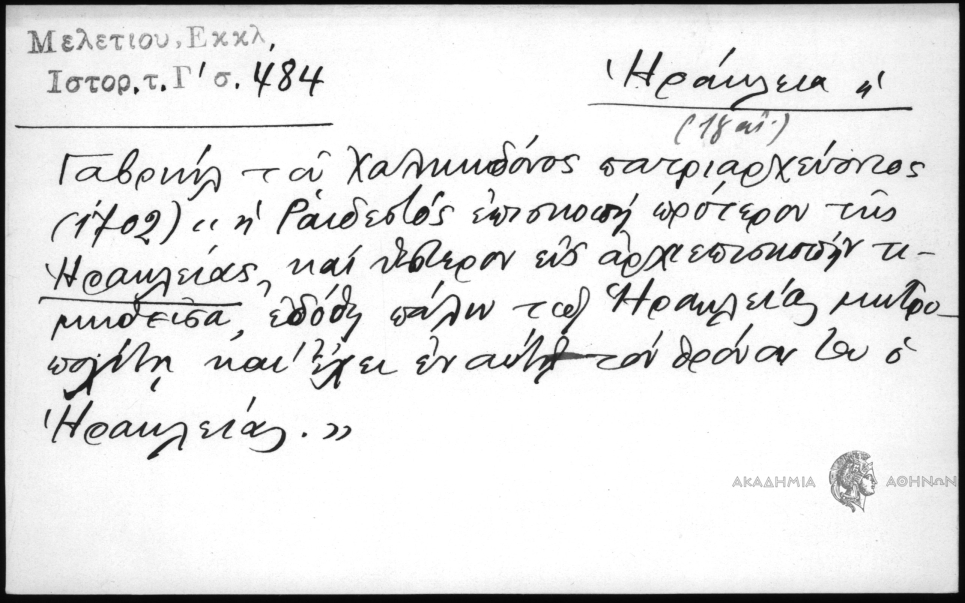 Μελετίου, Εκκλ,
Ιστορ. τ. Γ' σ. 484
Ἡράκλεια ἡ
(18 αἰ.)
Γαβριὴλ τοῦ Χαλκηδόνος πατριαρχεύοντος
(1702) « ἡ Ραιδεστὸς ἐπισκοπὴ πρότερον τῆς
Ἡρακλείας, καὶ ὕστερον εἰς ἀρχιεπισκοπὴν τι-
μηθεῖσα, ἐδόθη πάλιν τῷ Ἡρακλείας μητρο-
πολίτῃ καὶ ἔχει ἐν αὐτῇ τὸν θρόνον του ὁ
Ἡρακλείας. »
ΑΚΑΔΗΜΙΑ ΑΘΗΝΩΝ